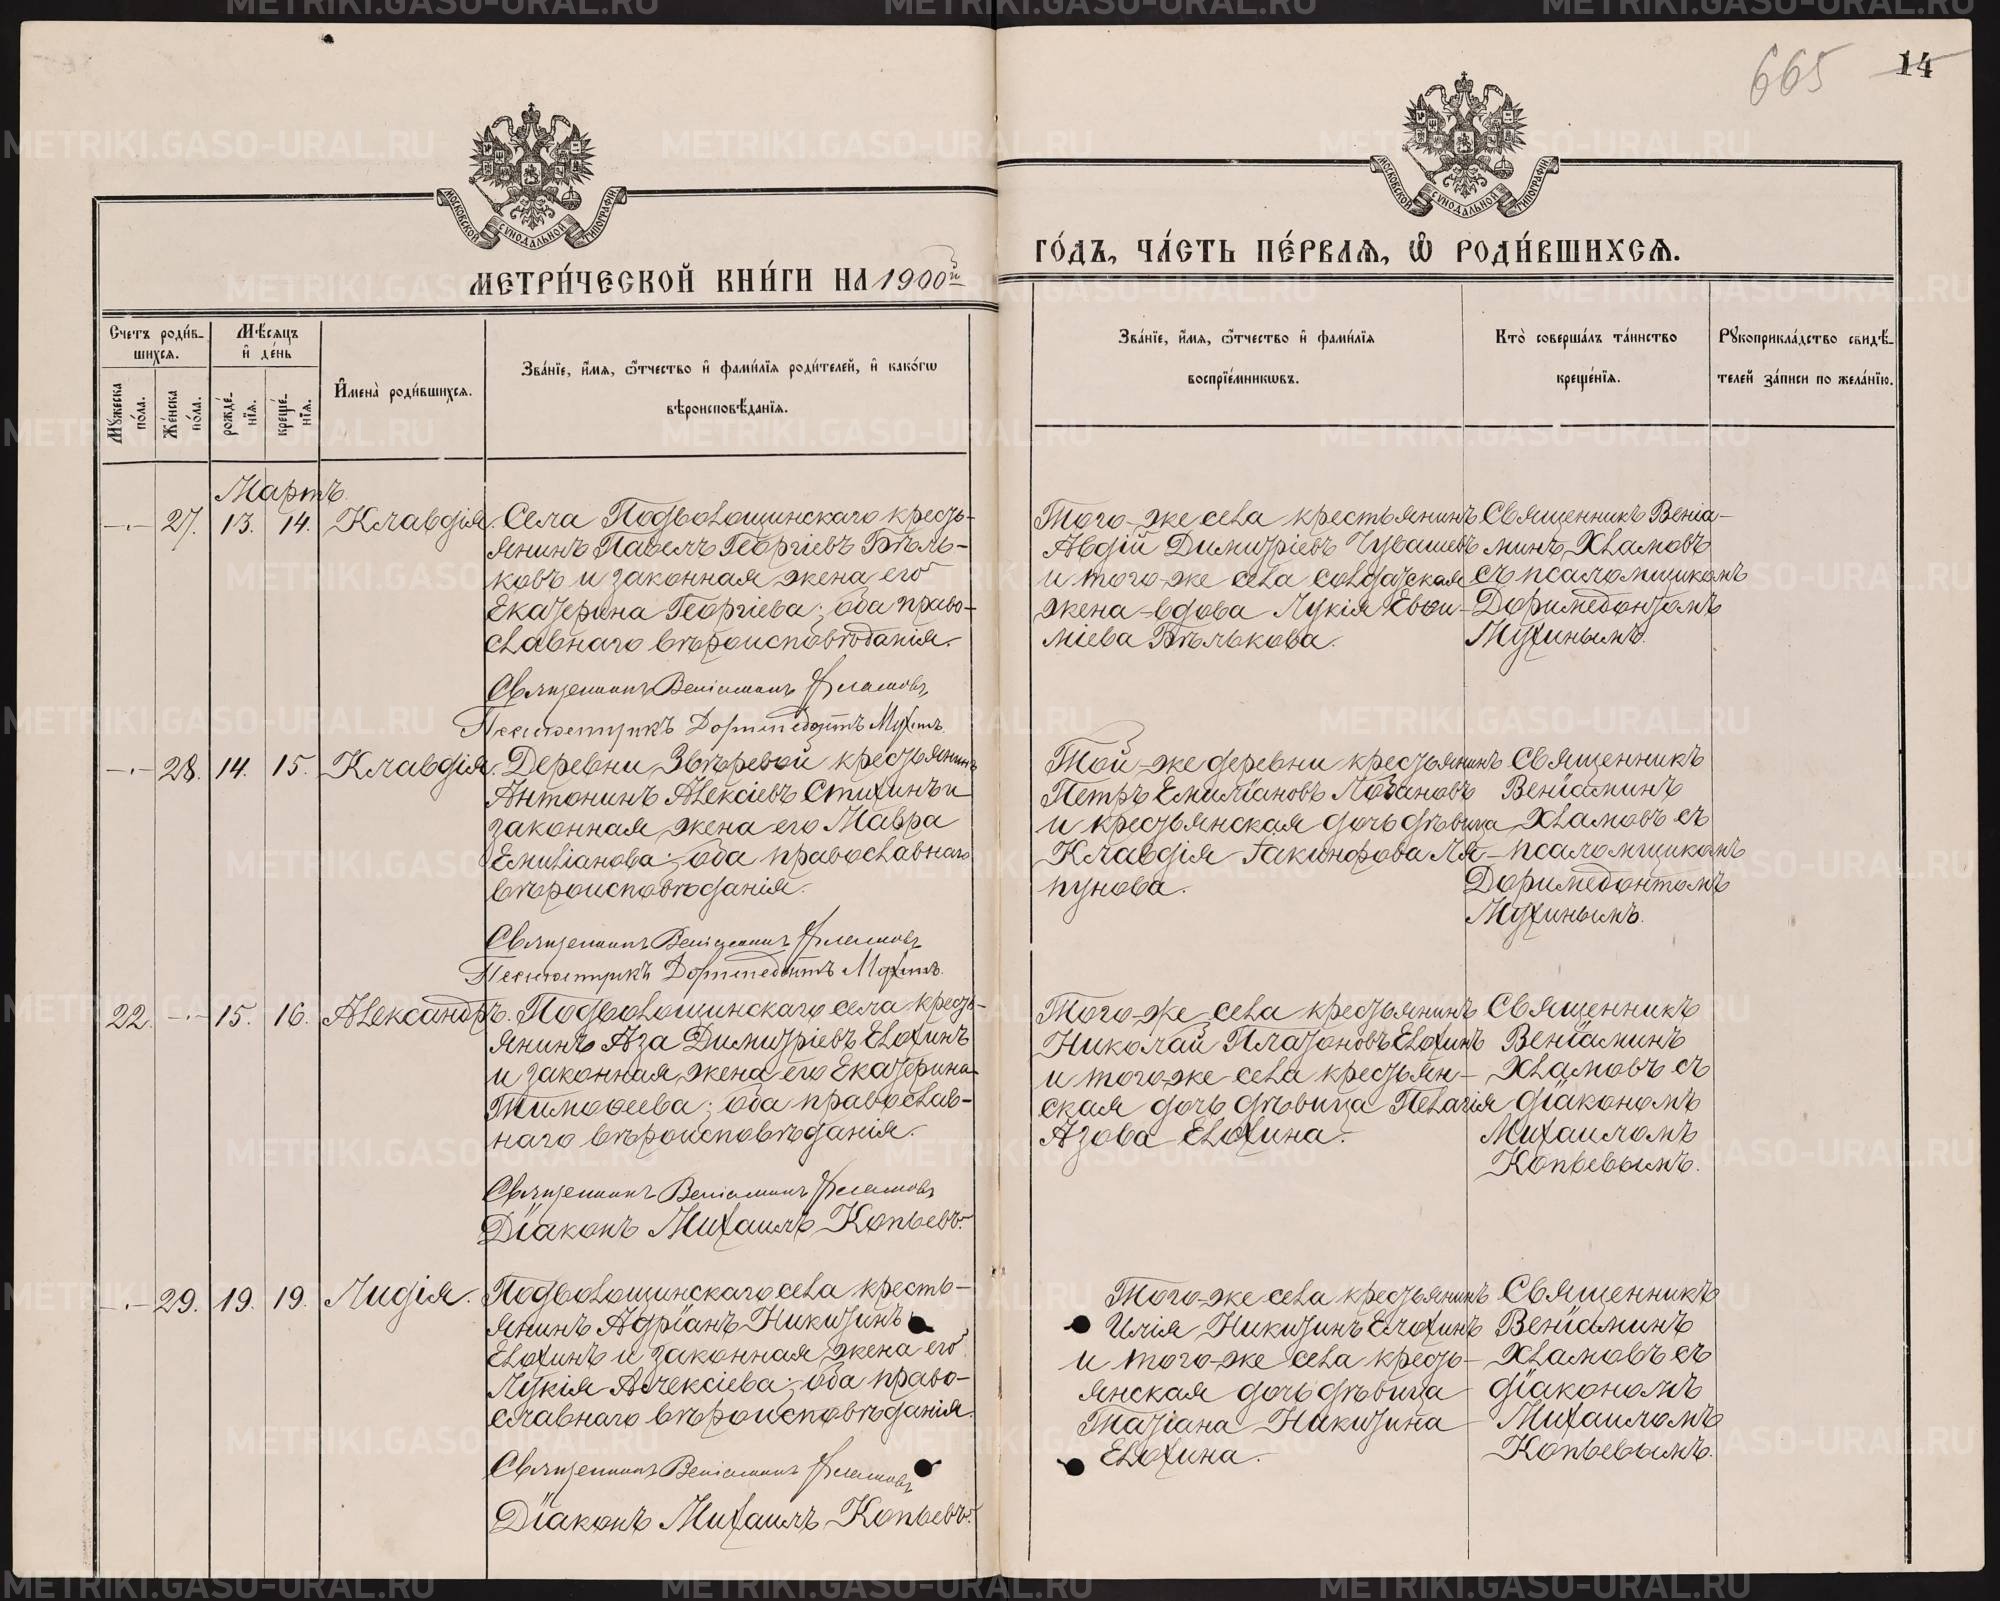 665 14
МОСКОВСКОЙ СѴНОДАЛЬНОЙ ТИПОГРАФІИ
МОСКОВСКОЙ СѴНОДАЛЬНОЙ ТИПОГРАФІИ
МЕТРИ́ЧЕСКОЙ КНИ́ГИ НА 1900й
ГО́ДЪ, ЧА́СТЬ ПЕ́РВАѦ, Ѽ РОДИ́ВШИХСѦ.
Счетъ роди́в-
шихсѧ.
Мѣсѧцъ
и де́нь
Мꙋжеска
по́ла.
Же́нска
по́ла.
рожде́-
нїѧ.
креще́-
нїѧ.
Имена̀ роди́вшихсѧ.
Зва́нїе, и́мѧ, ѻ҆́тчество и фами́лїѧ роди́телей, и како́гѡ
вѣроисповѣ́данїѧ.
Зва́нїе, и́мѧ, ѻ҆́тчество и фами́лїѧ
воспрїе́мникѡвъ.
Кто̀ соверша́лъ та́инство
креще́нїѧ.
Рꙋкоприкла́дство свидѣ́-
телей за́писи по жела́нїю.
Мартъ
27. 13. 14. Клавдія.
Села Подволошинскаго кресть-
янинъ Павелъ Георгіевъ Бѣль-
ковъ и законная жена его
Екатерина Георгіева; оба право-
славнаго вѣроисповѣданія.
Священникъ Веніаминъ Хламовъ
Псаломщикъ Доримедонтъ Мухинъ.
Того-же села крестьянинъ
Авдій Димитріевъ Чувашевъ
и того-же села солдатская
жена-вдова Лукія Евѳи-
міева Бѣлькова.
Священникъ Веніа-
минъ Хламовъ
съ псаломщикомъ
Доримедонтомъ
Мухинымъ.
28. 14. 15. Клавдія.
Деревни Звѣревой крестьянинъ
Антонинъ Алексіевъ Стихинъ и
законная жена его Мавра
Емиліанова; оба православнаго
вѣроисповѣданія.
Священникъ Веніаминъ Хламовъ
Псаломщикъ Доримедонтъ Мухинъ.
Той-же деревни крестьянинъ
Петръ Емиліановъ Лобановъ
и крестьянская дочь дѣвица
Клавдія Іакинфова Ля-
пунова.
Священникъ
Веніаминъ
Хламовъ съ
псаломщикомъ
Доримедонтомъ
Мухинымъ.
22. 15. 16. Александръ.
Подволошинскаго села кресть-
янинъ Аза Димитріевъ Елохинъ
и законная жена его Екатерина
Тимоѳеева; оба православ-
наго вѣроисповѣданія.
Священникъ Веніаминъ Хламовъ
Діаконъ Михаилъ Копьевъ.
Того-же села крестьянинъ
Николай Платоновъ Елохинъ
и того-же села крестьян-
ская дочь дѣвица Пелагія
Азова Елохина.
Священникъ
Веніаминъ
Хламовъ съ
діакономъ
Михаиломъ
Копьевымъ.
29. 19. 19. Лидія.
Подволошинскаго села кресть-
янинъ Адріанъ Никитинъ
Елохинъ и законная жена его
Лукія Алексіева; оба право-
славнаго вѣроисповѣданія.
Священникъ Веніаминъ Хламовъ
Діаконъ Михаилъ Копьевъ.
Того-же села крестьянинъ
Илія Никитинъ Елохинъ
и того-же села кресть-
янская дочь дѣвица
Татіана Никитина
Елохина.
Священникъ
Веніаминъ
Хламовъ съ
діакономъ
Михаиломъ
Копьевымъ.
METRIKI.GASO-URAL.RU